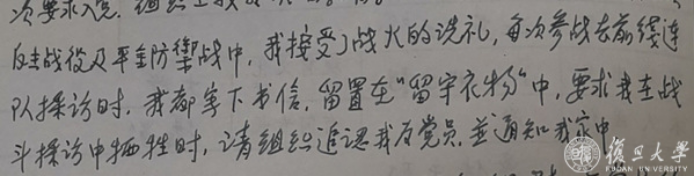 次要求入党.组织上我
反击战役及平金防御战中,我接受了战火的洗礼,每次参战去前线连
队采访时,我都写下书信,留置在"留守衣物"中,要求我在战
斗采访中牺牲时,请组织追认我为党员,并通知我家中
復旦大學
FUDAN UNIVERSITY